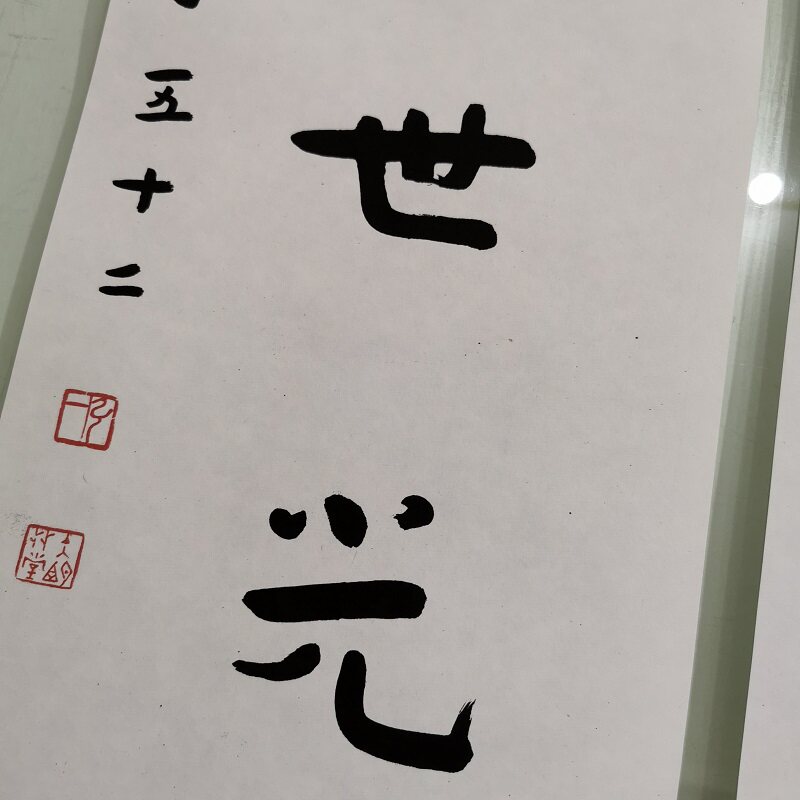 世光
五十二